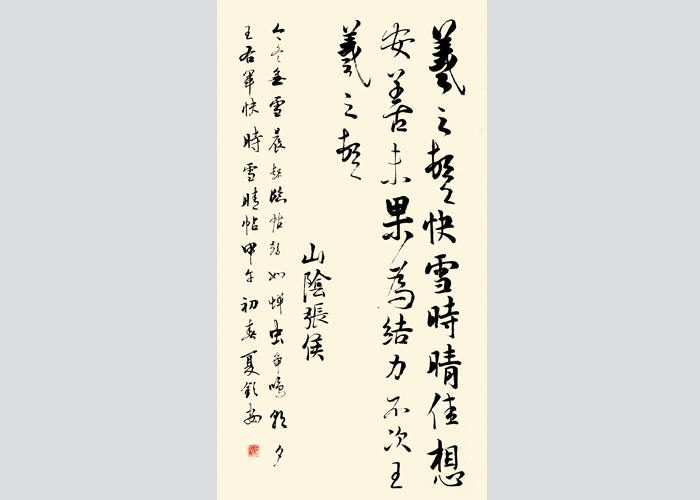 羲之頓首快雪時晴佳想
安善未果為結力不次王
羲之頓首
山陰張侯
今冬無雪晨起臨帖
王右軍快時雪晴帖甲午初春夏